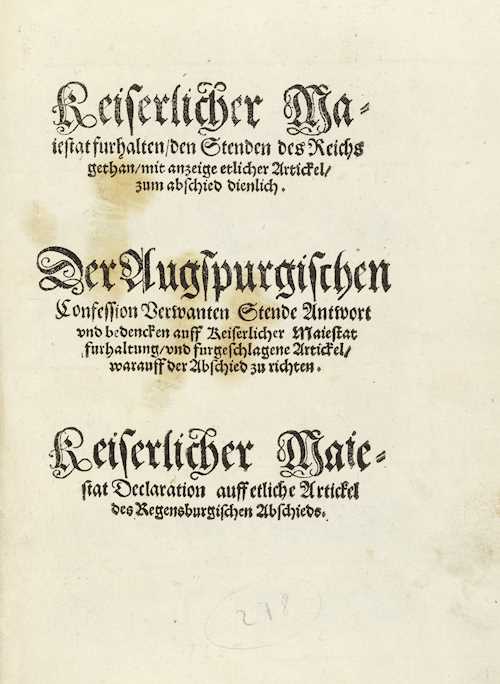 Keiserlicher Ma-
iestat furhalten/den Stenden des Reichs
gethan/mit anzeige etlicher Artickel/
zum abschied dienlich.
Der Augspurgischen
Confession Verwanten Stende Antwort
vnd bedencken auff Keiserlicher Maiestat
furhaltung/vnd furgeschlagene Artickel/
warauff der Abschied zu richten.
Keiserlicher Maie-
stat Declaration auff etliche Artickel
des Regensburgischen Abschieds.
218